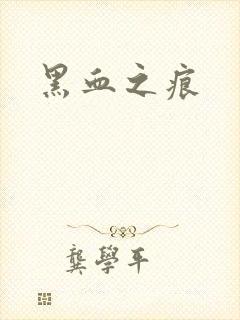 黑血之痕
龔學平